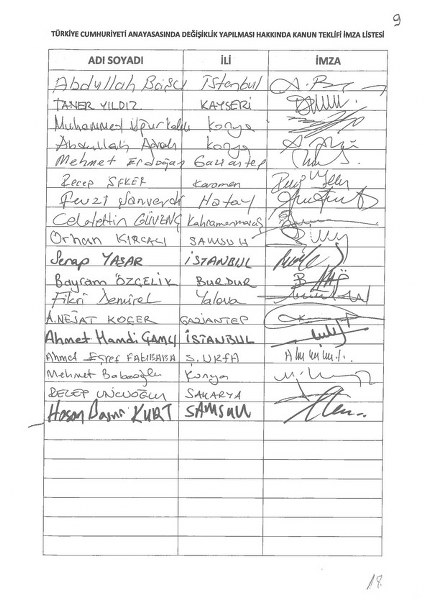 9
TÜRKİYE CUMHURİYETİ ANAYASASINDA DEĞİŞİKLİK YAPILMASI HAKKINDA KANUN TEKLİFİ İMZA LİSTESİ
ADI SOYADI İLİ İMZA
Abdullah Başcı İstanbul
TANER YILDIZ KAYSERİ
Muhammed Uğur Kaleli Konya
Abdullah Konya
Mehmet Erdoğan Gaziantep
Recep ŞEKER Karaman
Fevzi Şanverdi Hatay
Celalettin GÜVENÇ Kahramanmaraş
Orhan KIRCALI SAMSUN
Serap YAŞAR İSTANBUL
Bayram ÖZÇELİK BURDUR
Fikri Demirel Yalova
A.NEJAT KOÇER GAZİANTEP
Ahmet Hamdi ÇAMLI İSTANBUL
Ahmet EŞREF FAKIBABA Ş.URFA
Mehmet Babaoğlu Konya
RECEP UNCUOĞLU SAKARYA
Hasan Basri KURT SAMSUN
18.